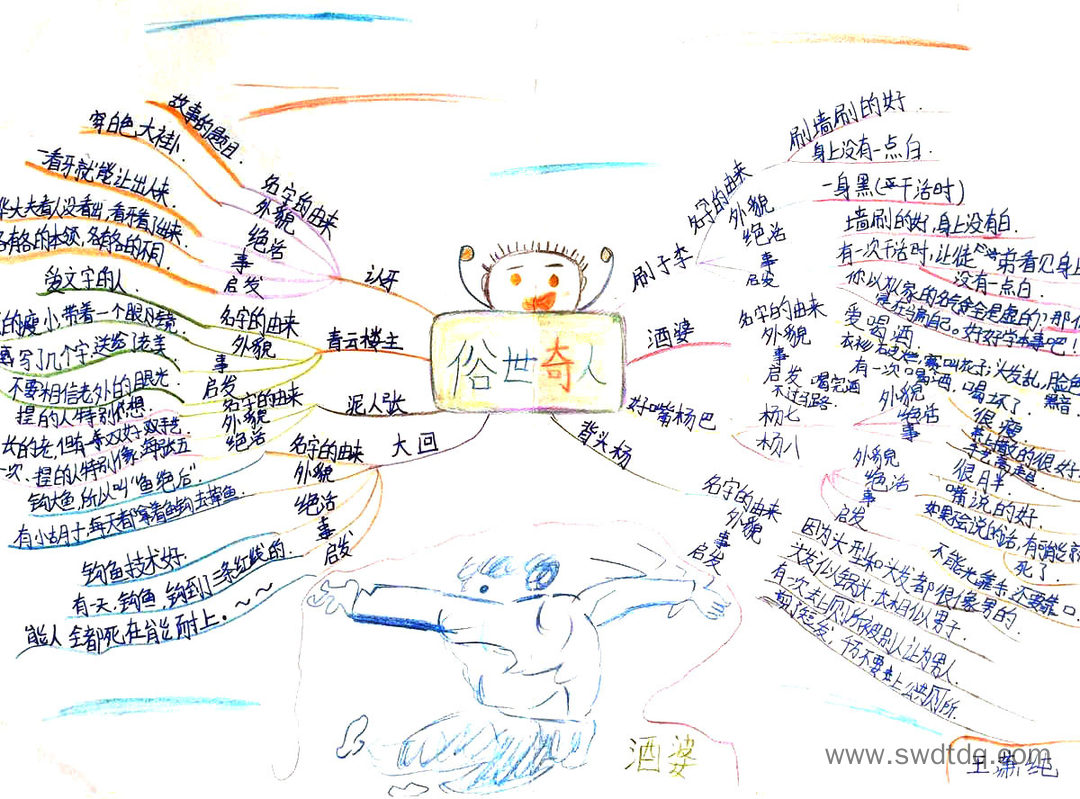 俗世奇人
认牙
名字的由来
故事的题目.
外貌
穿白色大褂.
绝活
一看牙就能让出人来.
事
华大夫看人没看出,看牙看了出来.
启发
各有各的本领,各有各的不同.
青云楼主
名字的由来
外貌
的瘦小,带着一个眼月镜.
事
写了几个字,送给了老美
启发
不要相信老外的眼光
泥人张
名字的由来
捏的人特别
外貌
绝活
一次、捏的人特别像海张五
大回
名字的由来
钩大鱼,所以叫“鱼绝后”
外貌
有小胡子,每天都拿着鱼钩去
绝活
钩鱼技术好.
事
有一天,钩鱼,钩到了三条红线的.
启发
能人全都死在能耐上.~~
刷子李
名字的由来
刷墙刷的好.
身上没有一点白.
外貌
一身黑(干活时)
绝活
墙刷的好,身上没有白.
事
有一次干活时,让徒弟看见身上
没有一点白.
启发
好好学本事吧!
酒婆
名字的由来
爱喝酒
外貌
头发乱,脸色
事
有一次喝酒,喝坏了.
启发
喝完酒
不过马路
好嘴杨巴
杨七
外貌
很瘦
绝活
的很好
事
杨八
外貌
很月半.
绝活
嘴说的好.
事
如果会说的话,有可能就
死了.
启发
不能光靠手,还要靠口
背头杨
名字的由来
因为大型和头发都很像男的
外貌
事
有一次去上厕所被别人让为男人
启发
千万不要去上公共厕所.
酒婆
www.swdtdq.com